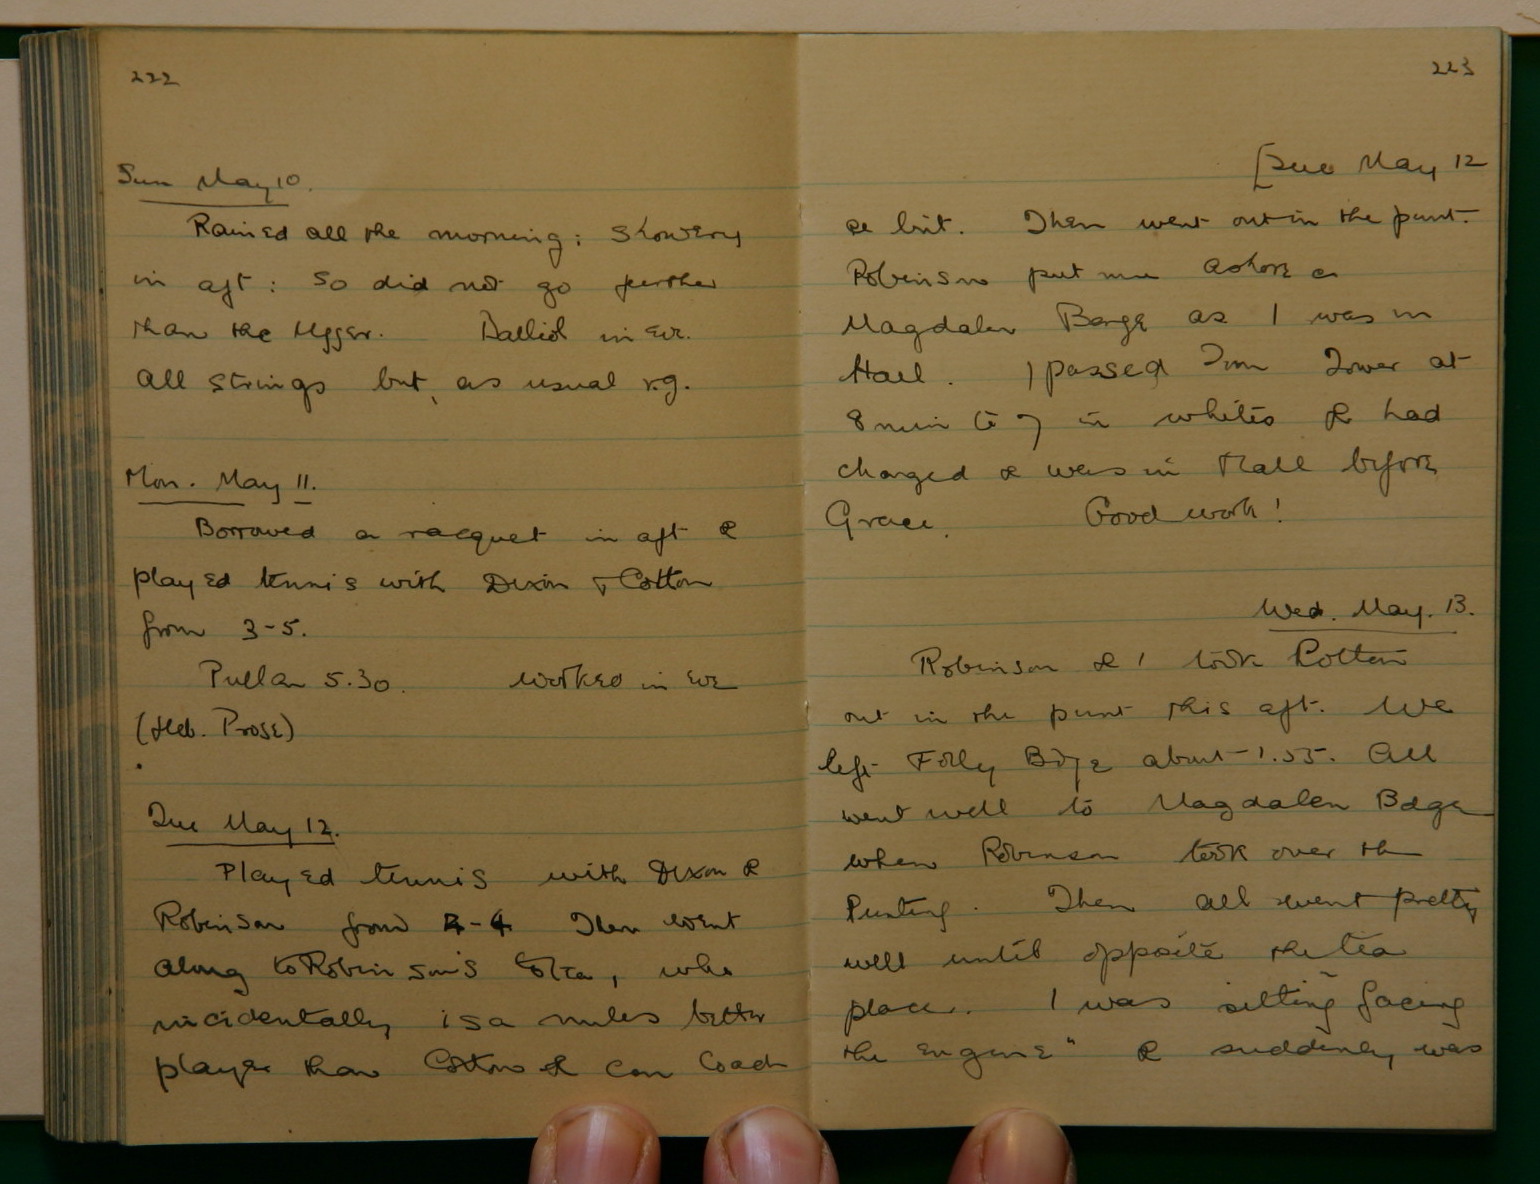 222
Sun May 10.
Rained all the morning: showery
in aft: so did not go further
than the Ugger. Balliol in eve.
All strings but, as usual v.g.
Mon. May 11.
Borrowed a racquet in aft &
played tennis with Dixon & Cotton
from 3-5.
Pullan 5.30. Worked in eve
(Heb. Prose)
Tue May 12.
Played tennis with Dixon &
Robinson from 2-4 Then went
along to Robinson's to tea, who
incidentally is a miles better
player than Cotton & can coach
223
[Tue May 12
a bit. Then went out in the punt.
Robinson put me ashore a
Magdalen Barge as I was in
Hall. I passed Tom Tower at
8 min to 7 in whites & had
changed & was in Hall before
Grace. Good work!
Wed. May. 13.
Robinson & I took Cotton
out in the punt this aft. We
left Folly Bdge about 1.55. All
went well to Magdalen Bdge
when Robinson took over the
Punting. Then all went pretty
well until opposite the tea
place. I was sitting facing
the engine" & suddenly was